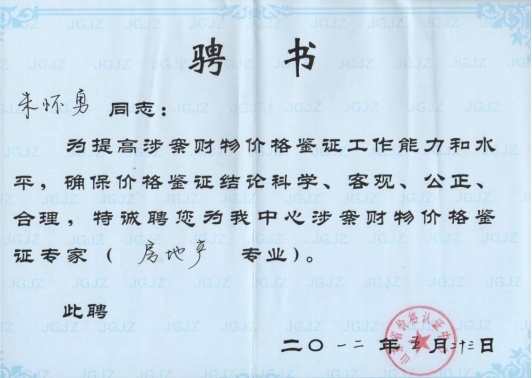 聘 书
朱怀勇 同志：
为提高涉案财物价格鉴证工作能力和水
平，确保价格鉴证结论科学、客观、公正、
合理，特诚聘您为我中心涉案财物价格鉴
证专家（ 房地产 专业）。
此聘
二〇一二年五月二十三日